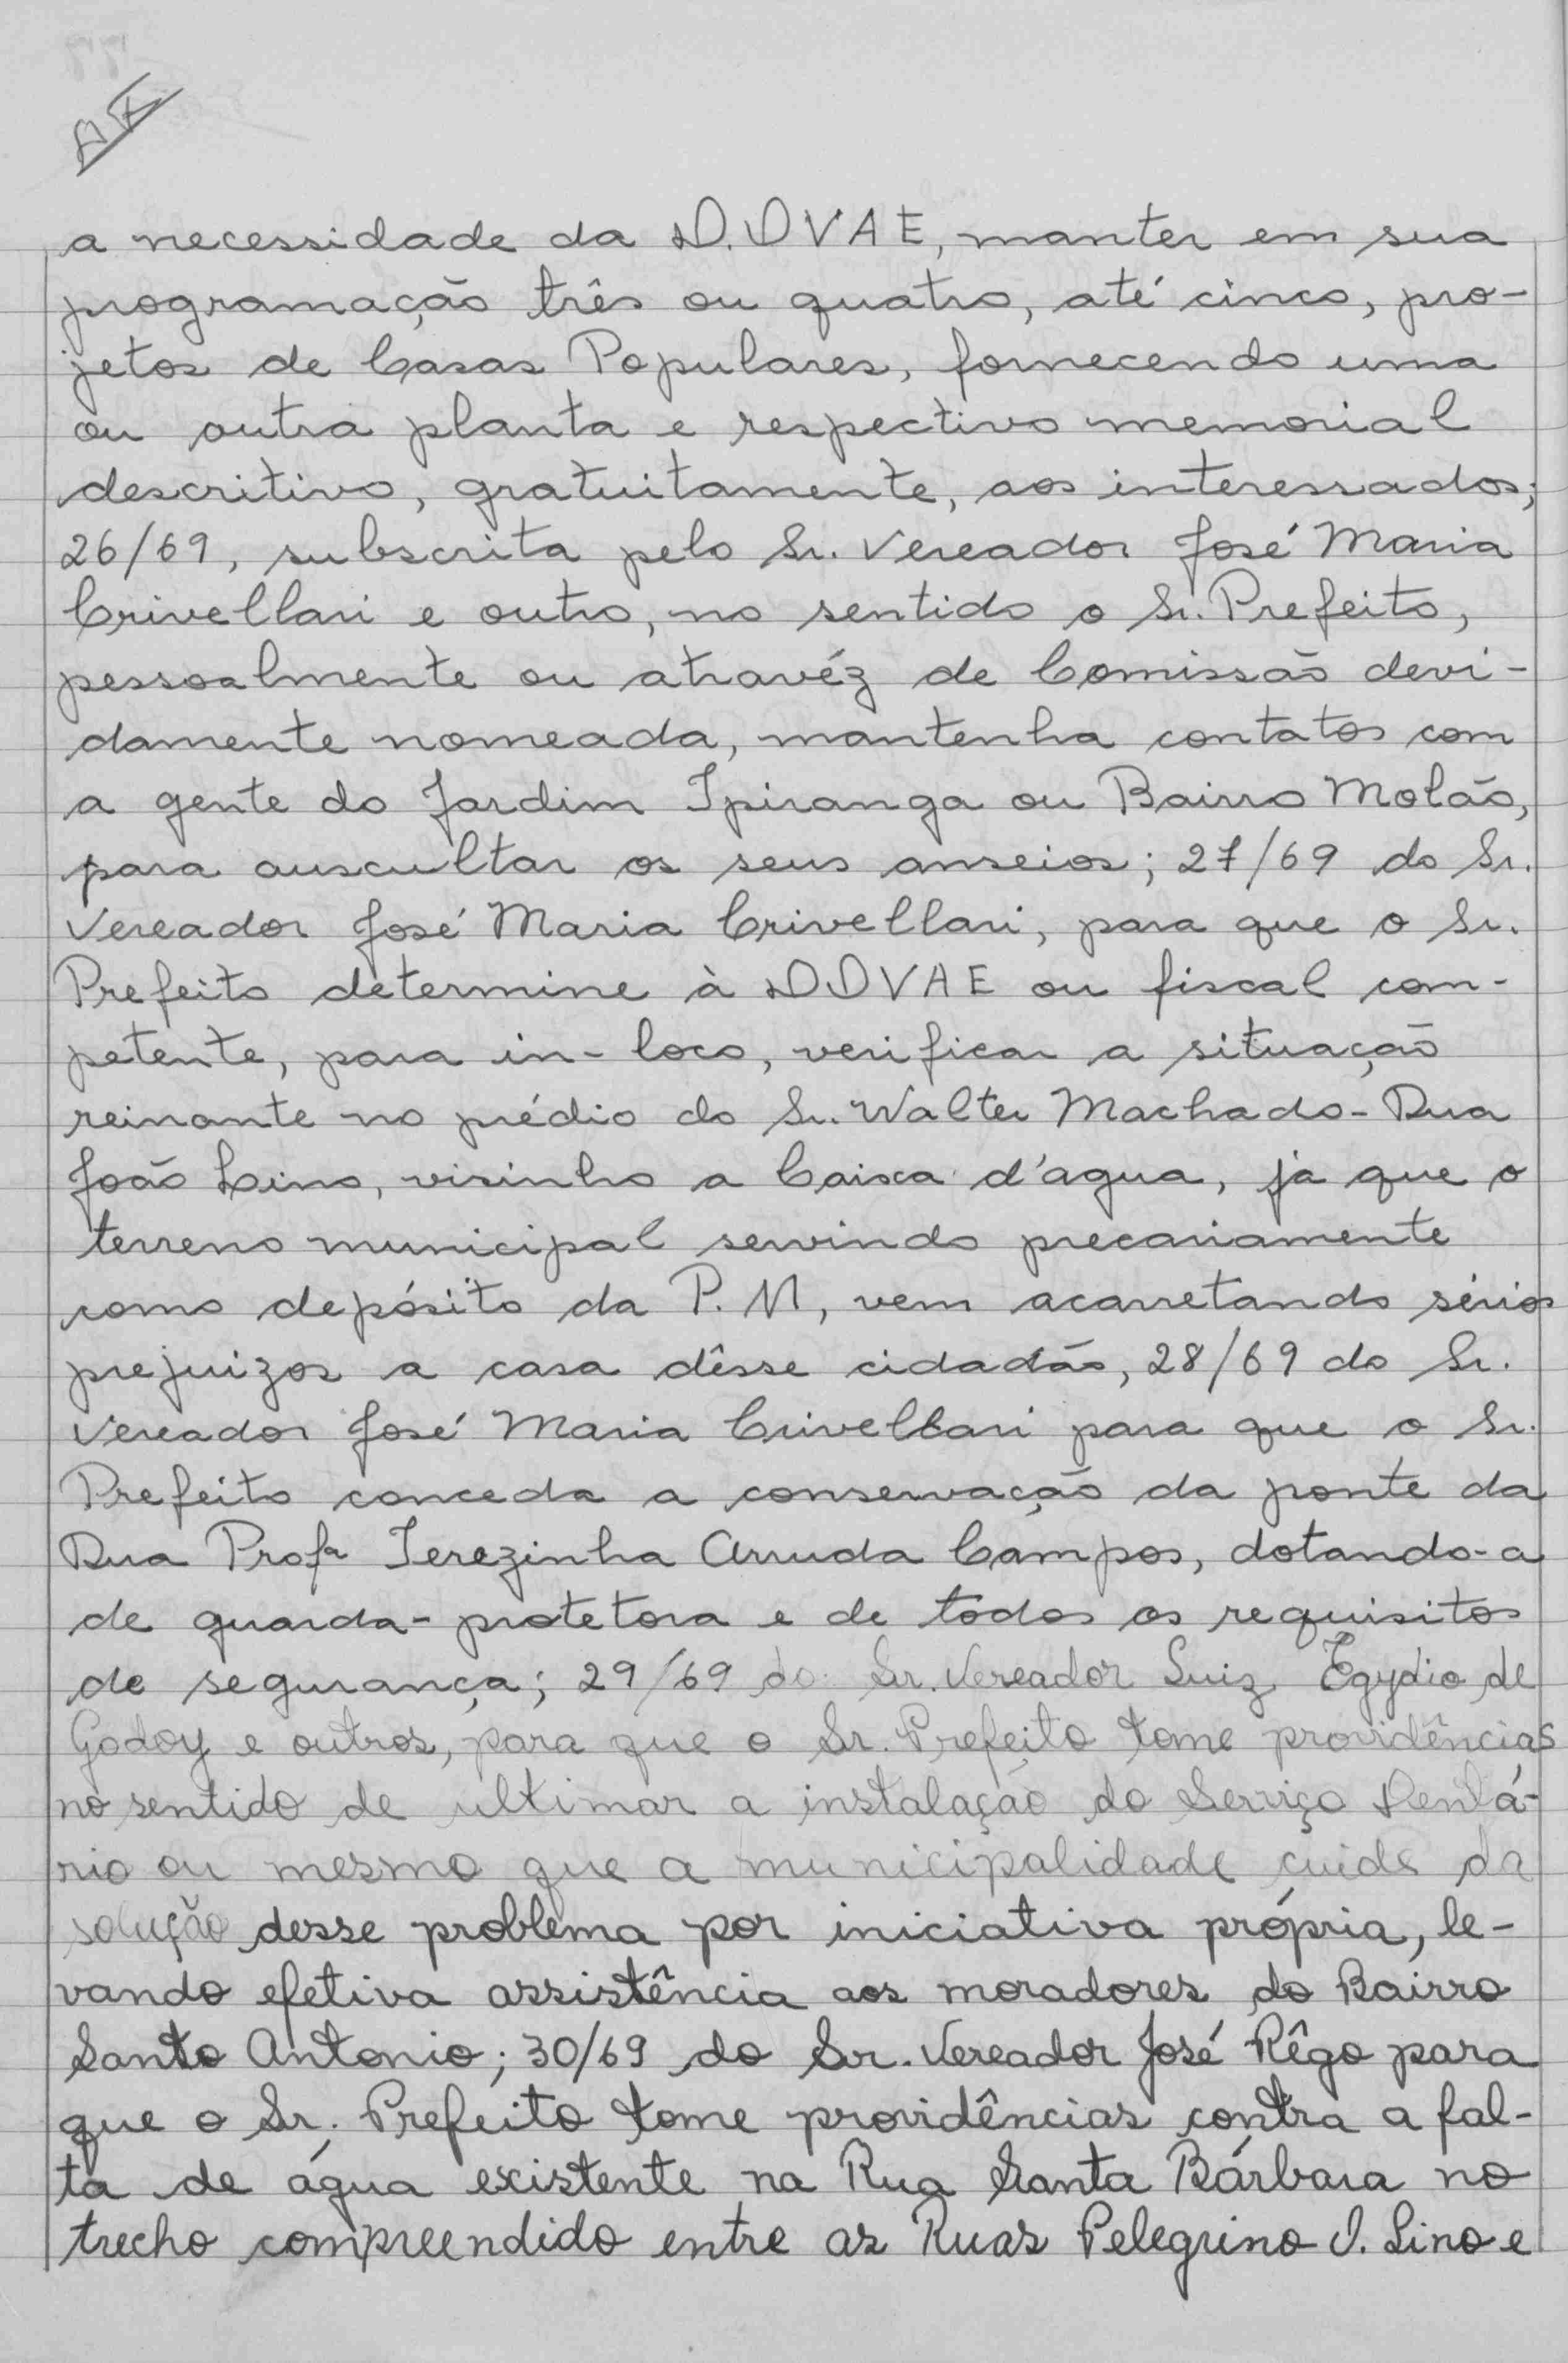 a necessidade da D.DVAE, manter em sua
programação três ou quatro, até cinco, pro-
jetos de Casas Populares, fornecendo uma
ou outra planta e respectivo memorial
descritivo, gratuitamente, aos interessados;
26/69, subscrita pelo Sr. Vereador José Maria
Crivellari e outro, no sentido o Sr. Prefeito,
pessoalmente ou atravéz de Comissão devi-
damente nomeada, mantenha contatos com
a gente do Jardim Ipiranga ou Bairro Molão,
para auscultar os seus anseios; 27/69 do Sr.
Vereador José Maria Crivellari, para que o Sr.
Prefeito determine à DDVAE ou fiscal com-
petente, para in-loco, verificar a situação
reinante no prédio do Sr. Walter Machado - Rua
João Lino, visinho a Caixa d'agua, já que o
terreno municipal servindo precariamente
como depósito da P.M, vem acarretando sérios
prejuizos a casa dêsse cidadão, 28/69 do Sr.
Vereador José Maria Crivellari para que o Sr.
Prefeito conceda a conservação da ponte da
Rua Profa Terezinha Arruda Campos, dotando-a
de guarda-protetora e de todos os requisitos
de segurança; 29/69 do Sr. Vereador Luiz Egydio de
Godoy e outros, para que o Sr. Prefeito tome providências
no sentido de ultimar a instalação do Serviço Dentá-
rio ou mesmo que a municipalidade cuide da
solução desse problema por iniciativa própria, le-
vando efetiva assistência aos moradores do Bairro
Santo Antonio; 30/69 do Sr. Vereador José Rêgo para
que o Sr. Prefeito tome providências contra a fal-
ta de água existente na Rua Santa Bárbara no
trecho compreendido entre as Ruas Pelegrino O. Lino e